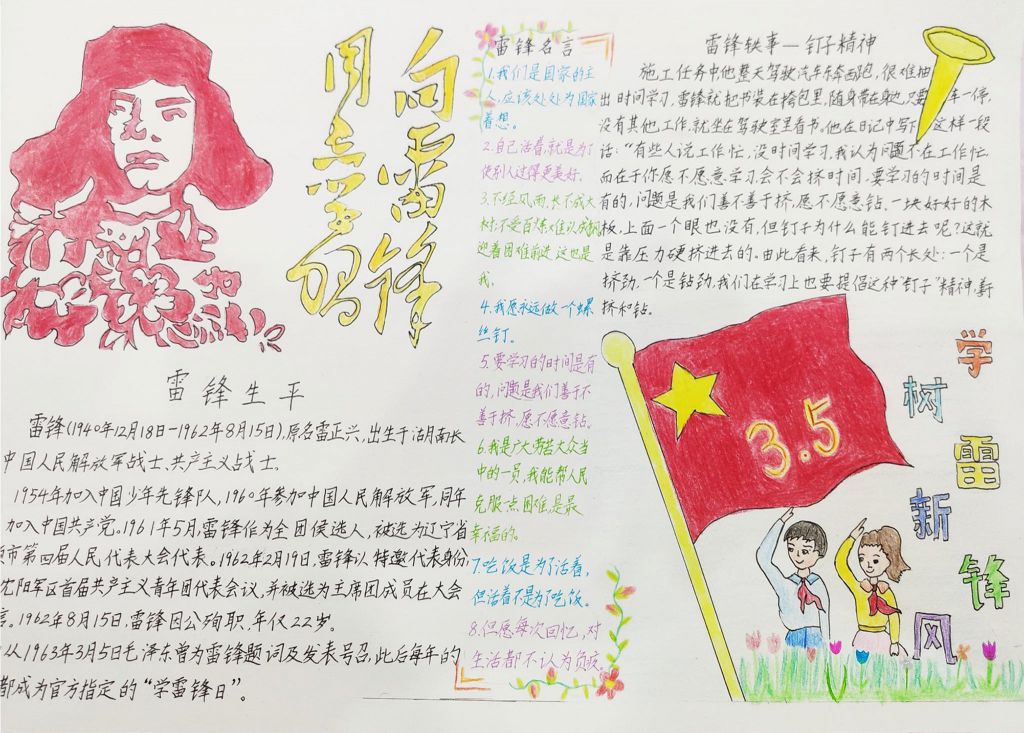 向雷锋
同志学习
雷锋名言
1.我们是国家的主
人,应该处处为国家
着想。
2.自己活着,就是为了
使别人过得更美好.
3.不经风雨,长不成大
树;不受百炼,难以成钢
迎着困难前进,这也是
我.
4.我愿永远做一个螺
丝钉。
5.要学习的时间是有
的,问题是我们善于不
善于挤,愿不愿意钻。
6.我是广大劳苦大众当
中的一员,我能帮人民
克服一点困难,是最
幸福的。
7.吃饭是为了活着,
但活着不是为了吃饭。
8.但愿每次回忆,对
生活都不认为负疚.
雷锋轶事—钉子精神
施工任务中他整天驾驶汽车东奔西跑,很难抽
出时间学习,雷锋就把书装在挎包里,随身带在身边,只要车一停,
没有其他工作,就坐在驾驶室里看书。他在日记中写下这样一段
话:“有些人说工作忙,没时间学习,我认为问题不在工作忙,
而在于你愿不愿意学习会不会挤时间.要学习的时间是
有的,问题是我们善不善于挤,愿不愿意钻.一块好好的木
板,上面一个眼也没有,但钉子为什么能钉进去呢?这就
是靠压力硬挤进去的.由此看来,钉子有两个长处:一个是
挤劲,一个是钻劲,我们在学习上也要提倡这种“钉子”精神,善于
挤和钻。
雷锋生平
雷锋(1940年12月18日—1962年8月15日),原名雷正兴,出生于湖南长
中国人民解放军战士、共产主义战士.
1954年加入中国少年先锋队,1960年参加中国人民解放军,同年
加入中国共产党。1961年5月,雷锋作为全团候选人,被选为辽宁省
市第四届人民代表大会代表。1962年2月19日,雷锋以特邀代表身份,
沈阳军区首届共产主义青年团代表会议,并被选为主席团成员在大会
言。1962年8月15日,雷锋因公殉职,年仅22岁.
从1963年3月5日毛泽东曾为雷锋题词及发表号召,此后每年的
都成为官方指定的“学雷锋日”。
3.5
学雷锋
树新风